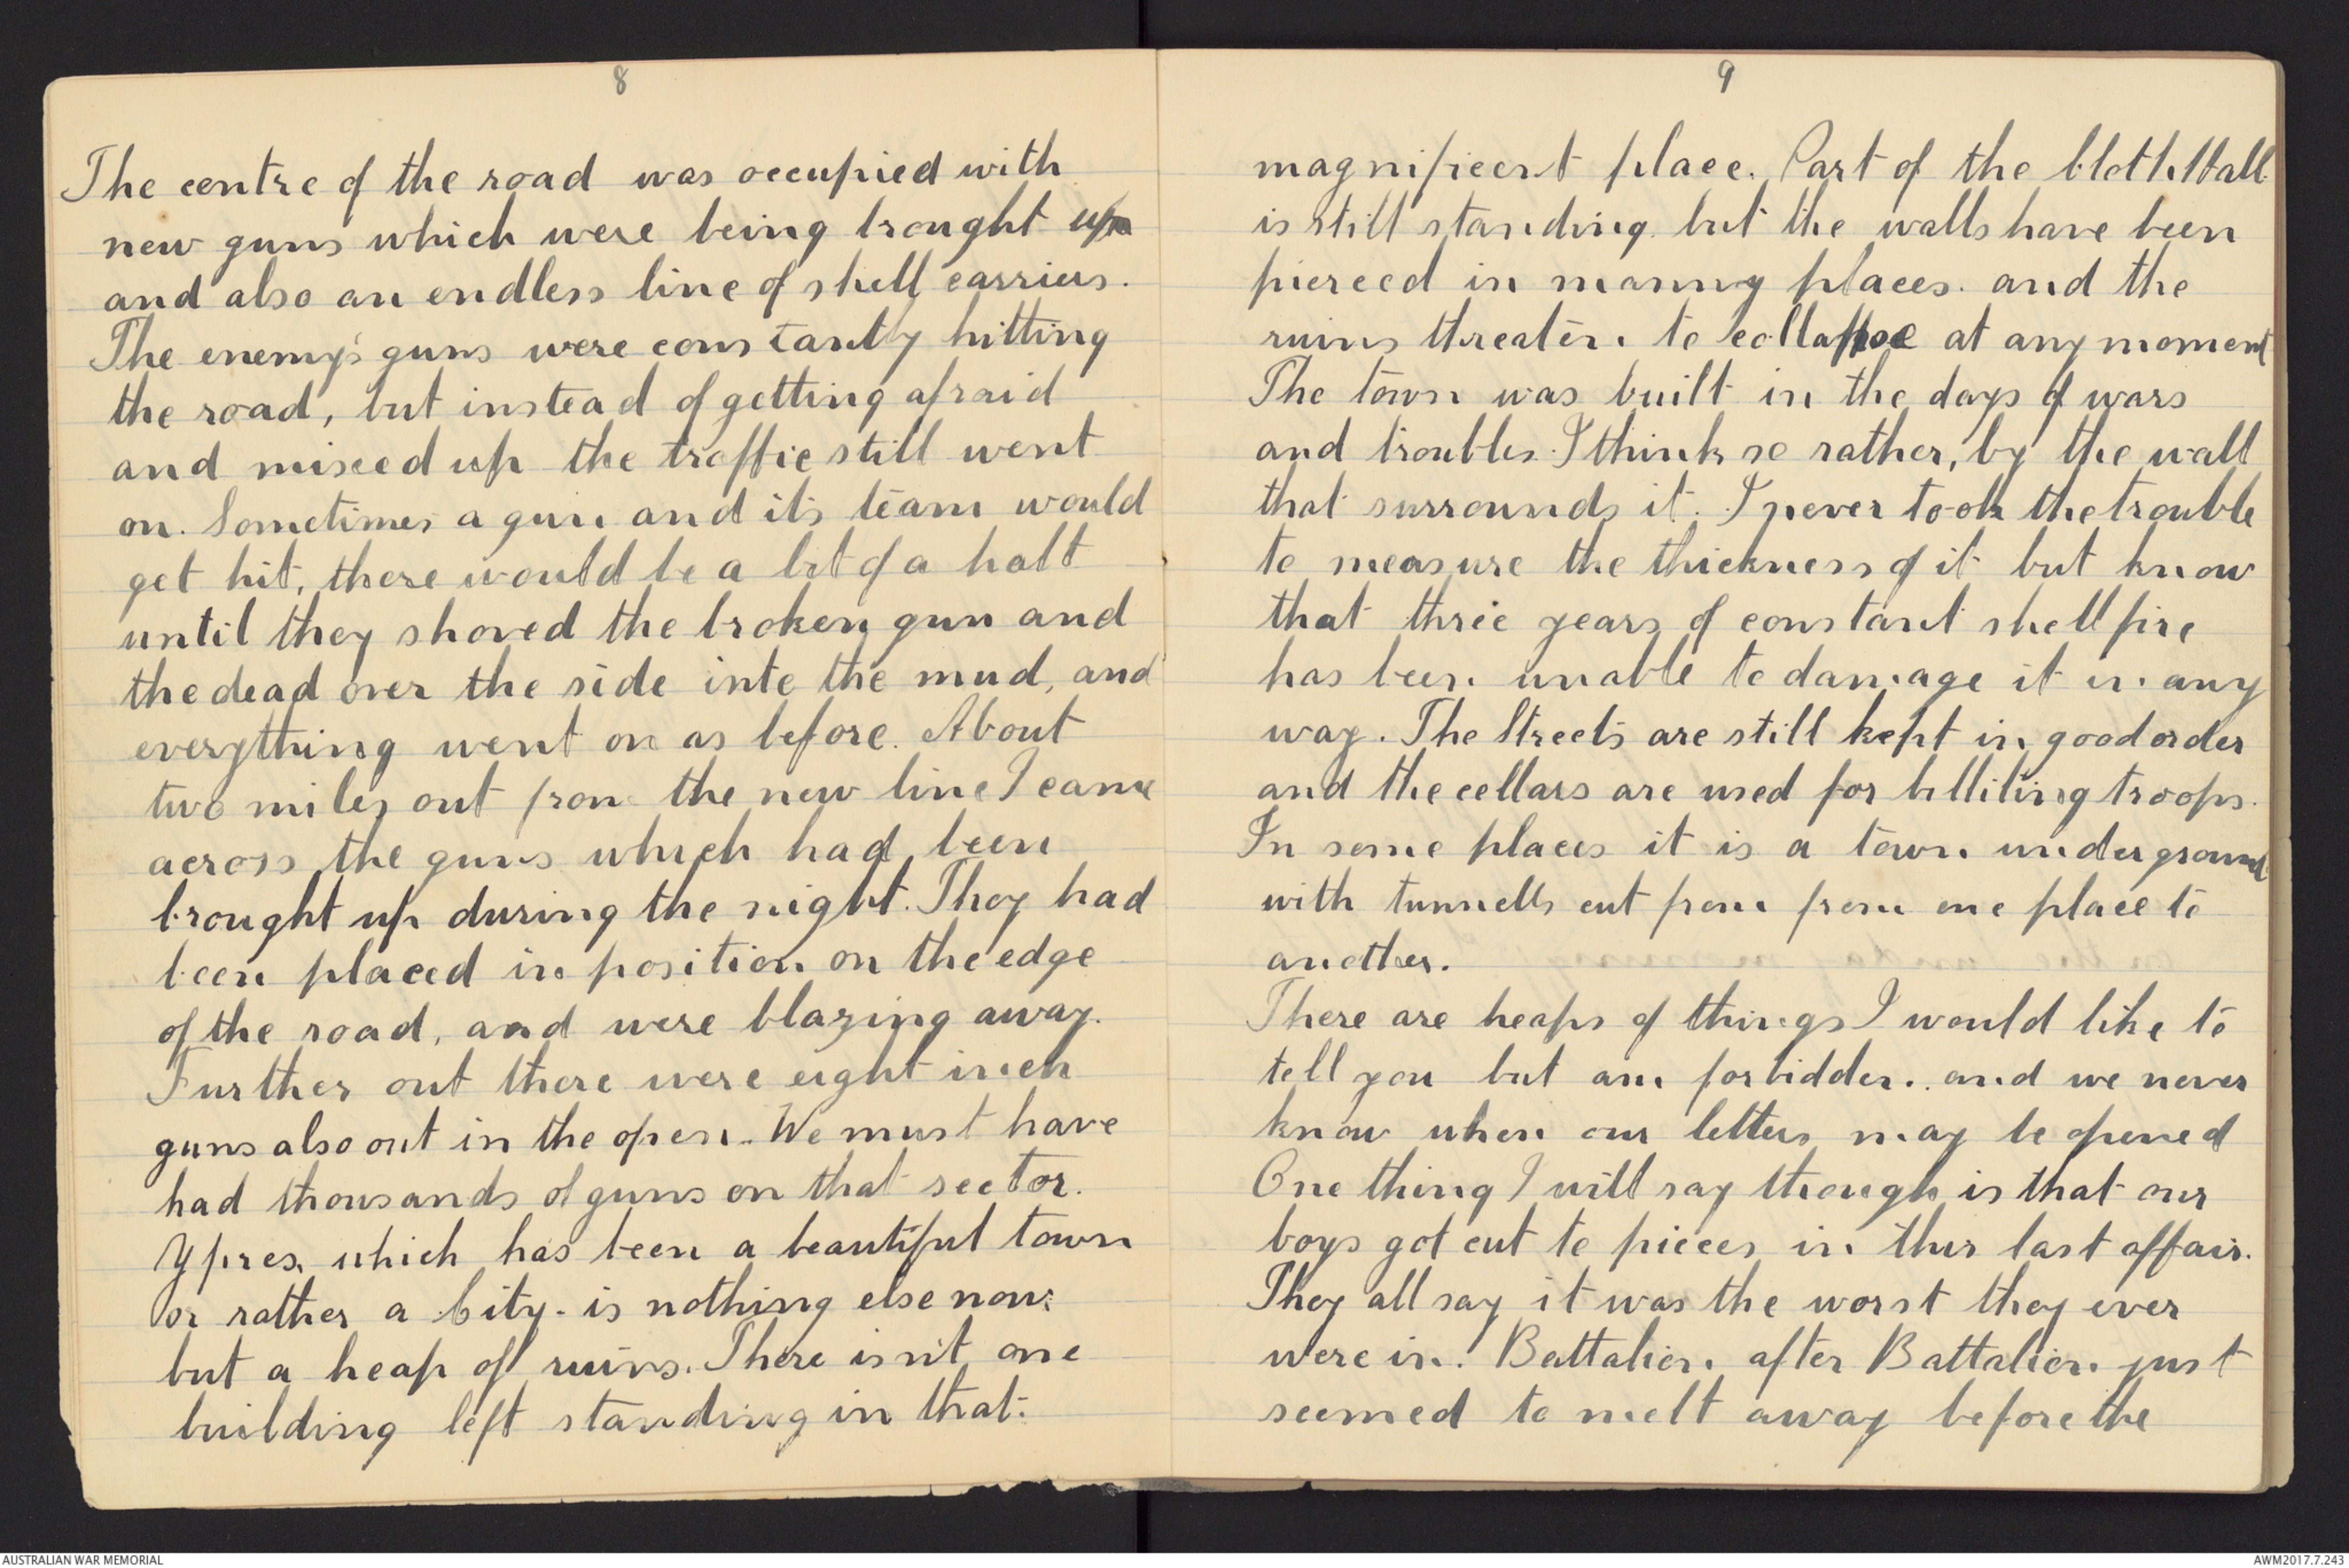 8
The centre of the road was occupied with
new guns which were being brought up
and also an endless line of shell carriers.
The enemy's guns were constantly hitting
the road, but instead of getting afraid
and mixed up the traffic still went
on. Sometimes a gun and its team would
get hit, there would be a bit of a halt
until they shoved the broken gun and
the dead over the side into the mud, and
everything went on as before. About
two miles out from the new line I came
across the guns which had been
brought up during the night. They had
been placed in position on the edge
of the road, and were blazing away.
Further out there were eight inch
guns also out in the open. We must have
had thousands of guns on that sector.
Ypres, which has been a beautiful town
or rather a City - is nothing else now
but a heap of ruins. There isn't one
building left standing in that
9
magnificent place. Part of the Cloth Hall
is still standing but the walls have been
pierced in manny places. and the
ruins threaten to collapse at any moment
The town was built in the days of wars
and troubles. I think so rather, by the wall
that surrounds it. I never took the trouble
to measure the thickness of it but know
that three years of constant shell fire
has been unable to damage it in any
way. The Streets are still kept in good order
and the cellars are used for billiting troops.
In some places it is a town underground
with tunnells cut from from one place to
another.
There are heaps of things I would like to
tell you but am forbidden. and we never
know when our letters may be opened
One thing I will say though is that our
boys got cut to pieces in this last affair.
They all say it was the worst they ever
were in. Battalion after Battalion just
seemed to melt away before the
AUSTRALIAN WAR MEMORIAL
AWM2017.7.243